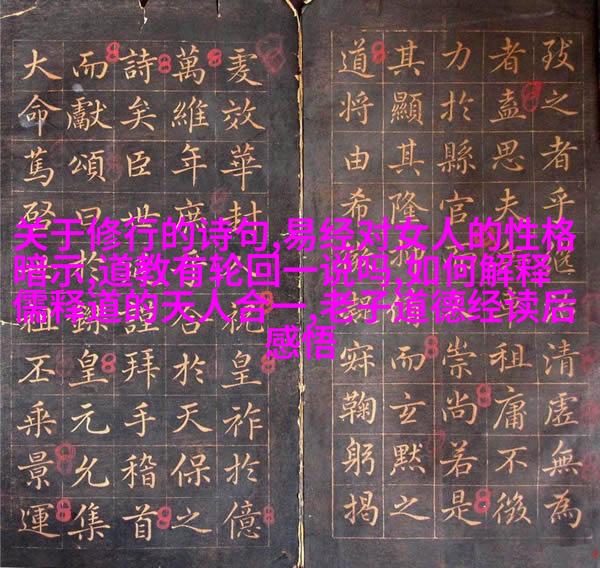 关于修行的诗句,易经对女人的性格
暗示,道教有轮回一说吗,如何解释
儒释道的天人合一,老子道德经读后
感悟
之者乎清虛無為
者盍思夫祖庸不
力於縣官崇尚若是
其顯其隆抑而玄默之
道將由希鞠躬揭
效華封祝皇祚於億
萬維年廣於天保之
詩矣臣世謹拜手稽首
而獻頌曰於鑠皇元允集
大命篤啓祖丕乘景運